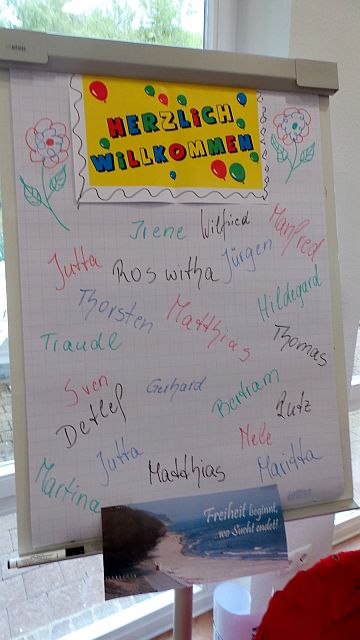 HERZLICH
WILLKOMMEN
Irene Wilfried Manfred
Jutta Roswitha Jürgen
Thorsten Matthias Hildegard
Traudl Thomas
Sven Gerhard Bertram Lutz
Detlef
Jutta Mele
Martina Matthias Maritta
Freiheit beginnt,
...wo Sucht endet!